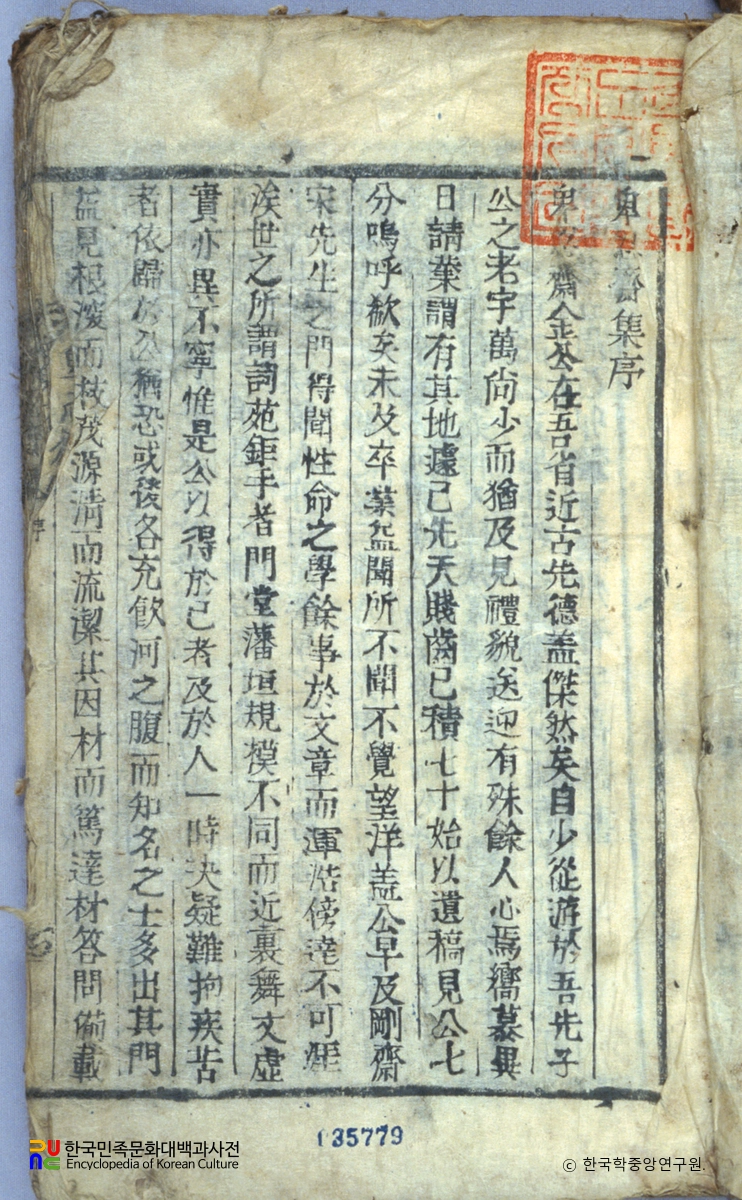 集序
齋金公在吾省近古先德盖傑然矣自少從游於吾先子
公之老宇萬尙少而猶及見禮貌送迎有殊餘人心焉嚮慕異
日請業謂有其地遽已先天賤齒已積七十始以遺稿見公七
分嗚呼欿矣未及卒業益聞所不聞不覺望洋盖公早及剛齋
宋先生之門得聞性命之學餘事於文章而渾浩傍達不可涯
涘世之所謂詞苑鉅手者門堂藩垣規模不同而近裏舞文虛
實亦異不寧惟是公以得於己者及於人一時决疑難抱疾苦
者依歸於公猶恐或後各充飮河之腹而知名之士多出其門
益見根深而枝茂源淸而流潔其因材而篤達材答問備載
135779
한국민족문화대백과사전
Encyclopedia of Korean Culture
ⓒ 한국학중앙연구원.